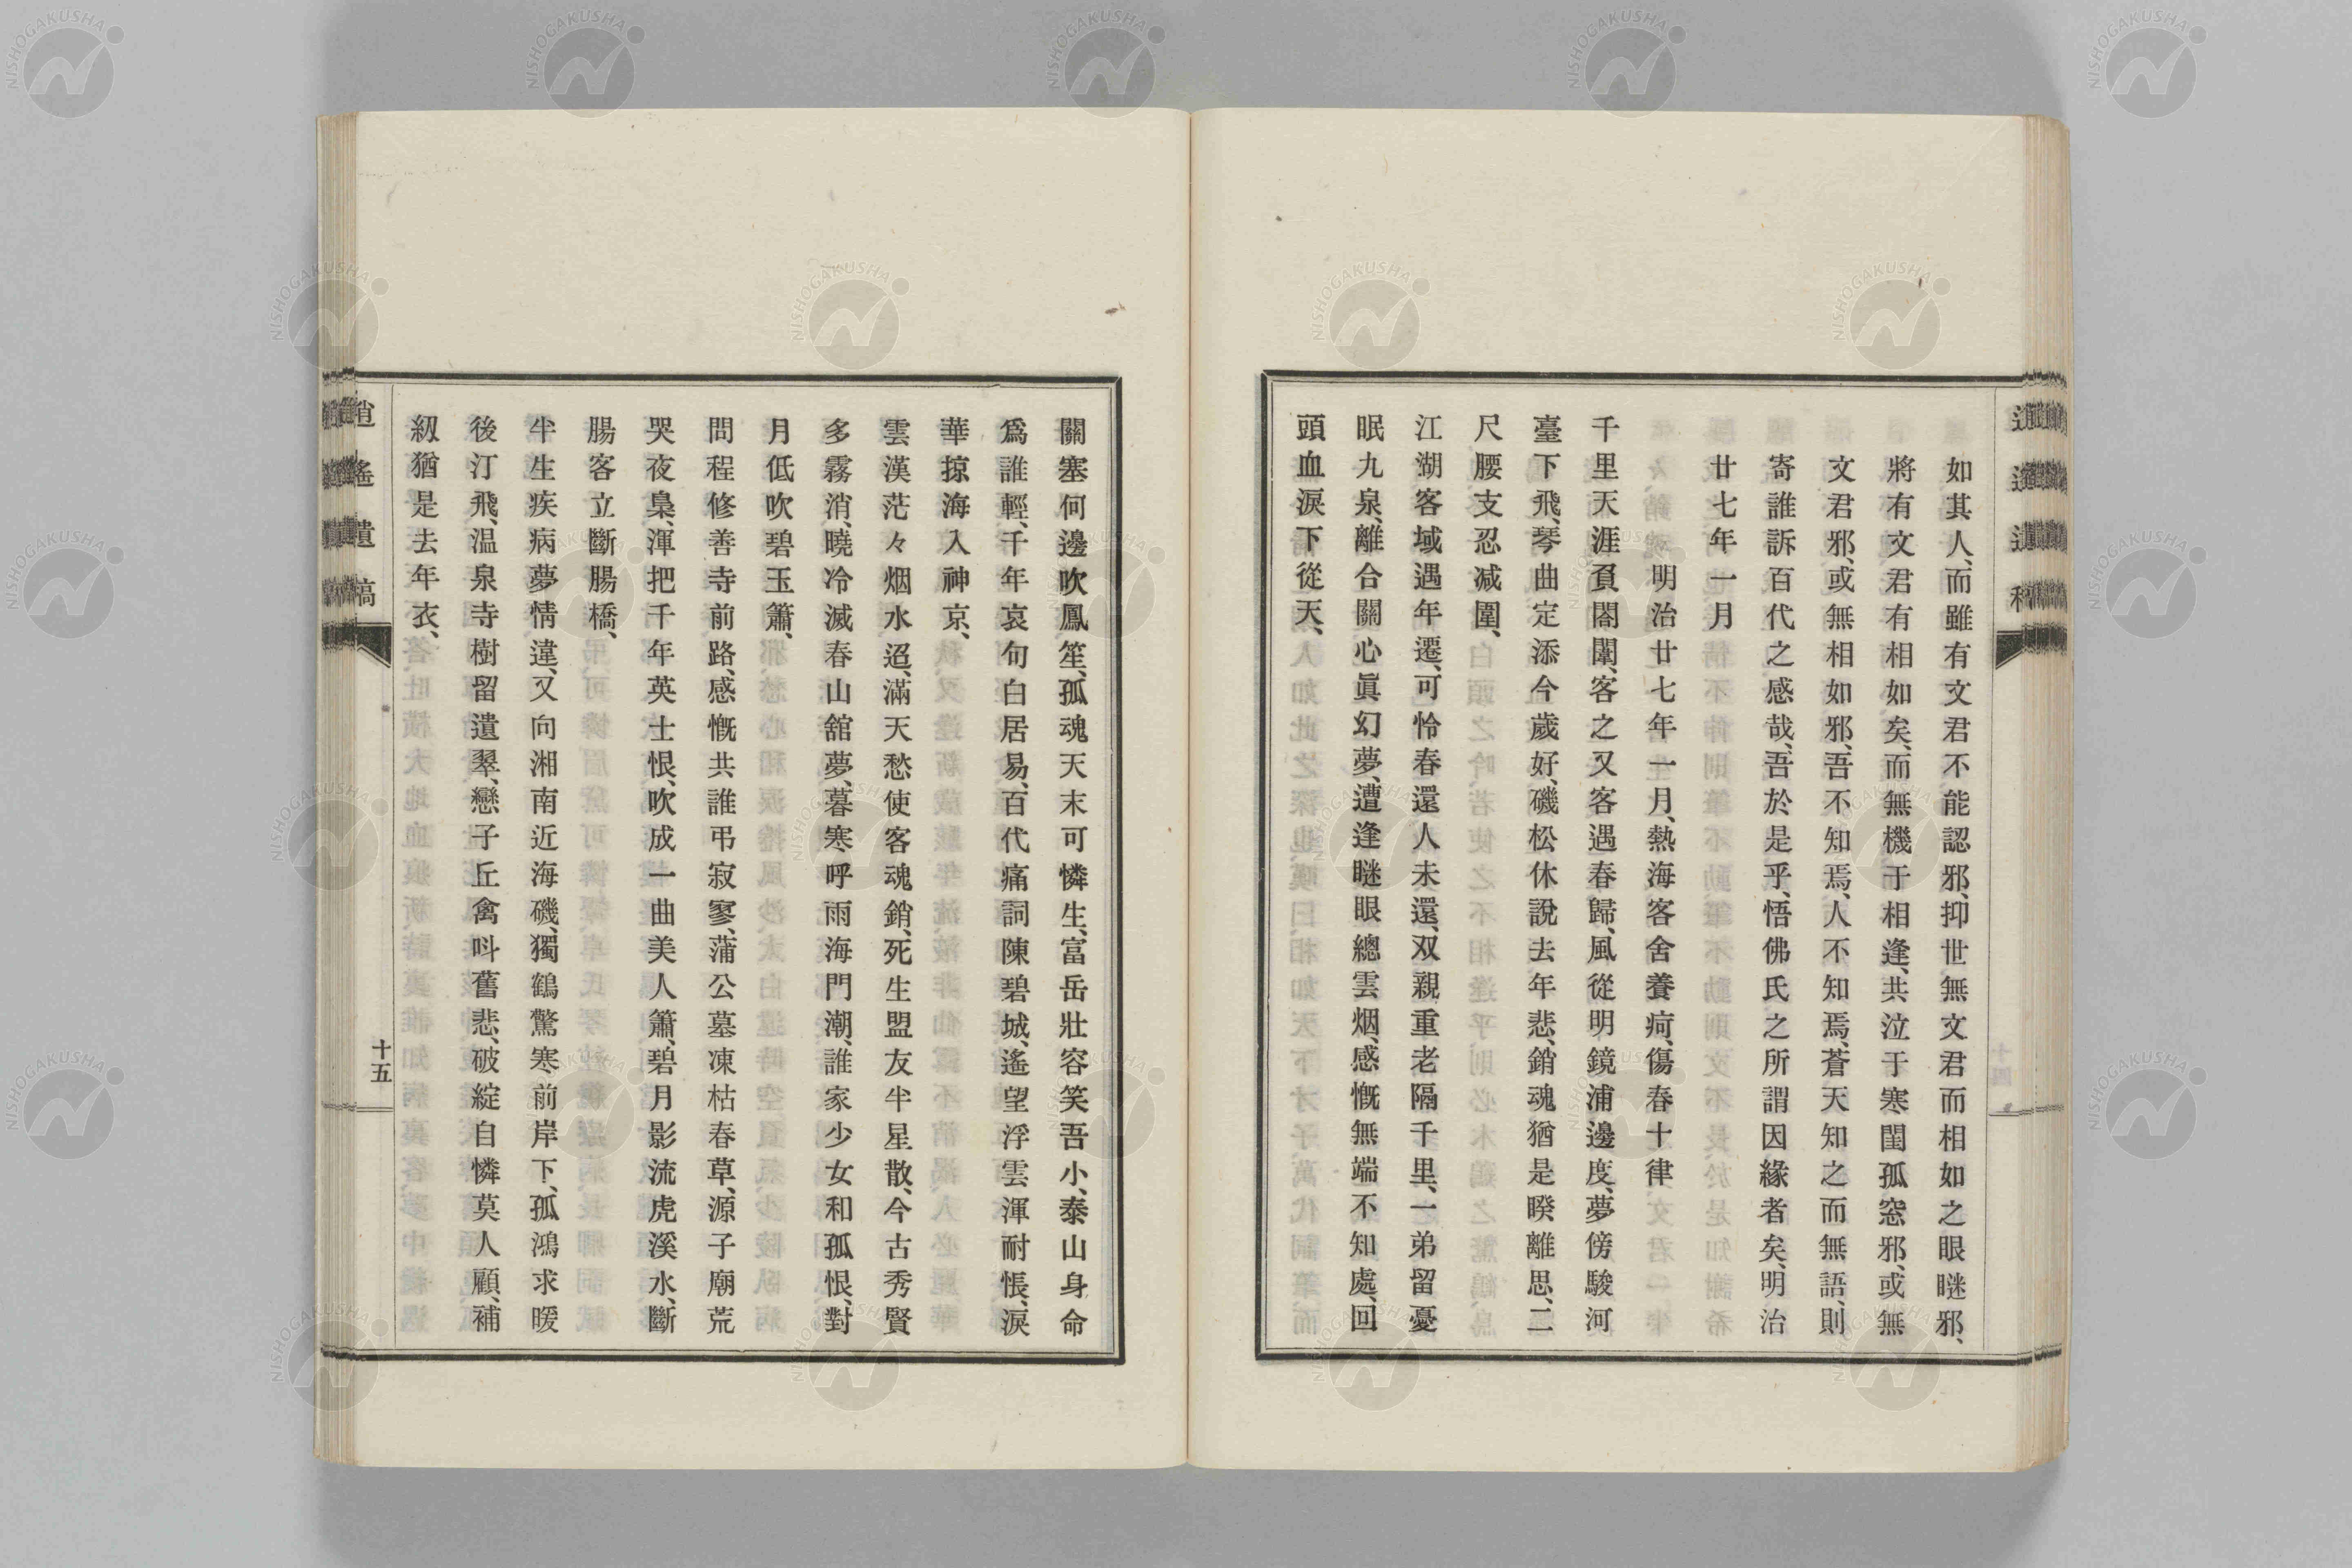 逍遙遺稿
如其人、而雖有文君不能認邪、抑世無文君而相如之眼瞇邪、
將有文君有相如矣、而無機于相逢、共泣于寒閨孤窓邪、或無
文君邪、或無相如邪、吾不知焉、人不知焉、蒼天知之而無語、則
寄誰訴百代之感哉、吾於是乎、悟佛氏之所謂因緣者矣、明治
廿七年一月
明治廿七年一月、熱海客舍養疴、傷春十律
千里天涯負閤闈、客之又客遇春歸、風從明鏡浦邊度、夢傍駿河
臺下飛、琴曲定添今歲好、磯松休說去年悲、銷魂猶是暌離思、二
尺腰支忍减圍、
江湖客域遇年遷、可怜春還人未還、双親重老隔千里、一弟留憂
眠九泉、離合關心眞幻夢、遭逢瞇眼總雲烟、感慨無端不知處、回
頭血淚下從天、
關塞何邊吹鳳笙、孤魂天末可憐生、富岳壯容笑吾小、泰山身命
爲誰輕、千年哀句白居易、百代痛詞陳碧城、遙望浮雲渾耐悵、淚
華掠海入神京、
雲漢茫々烟水迢、滿天愁使客魂銷、死生盟友半星散、今古秀賢
多霧消、曉冷滅春山舘夢、暮寒呼雨海門潮、誰家少女和孤恨、對
月低吹碧玉簫、
問程修善寺前路、感慨共誰弔寂寥、蒲公墓凍枯春草、源子廟荒
哭夜梟、渾把千年英士恨、吹成一曲美人簫、碧月影流虎溪水、斷
腸客立斷腸橋、
半生疾病夢情違、又向湘南近海磯、獨鶴驚寒前岸下、孤鴻求暖
後汀飛、温泉寺樹留遺翠、戀子丘禽呌舊悲、破綻自憐莫人顧、補
紉猶是去年衣、
逍遙遺稿
十五